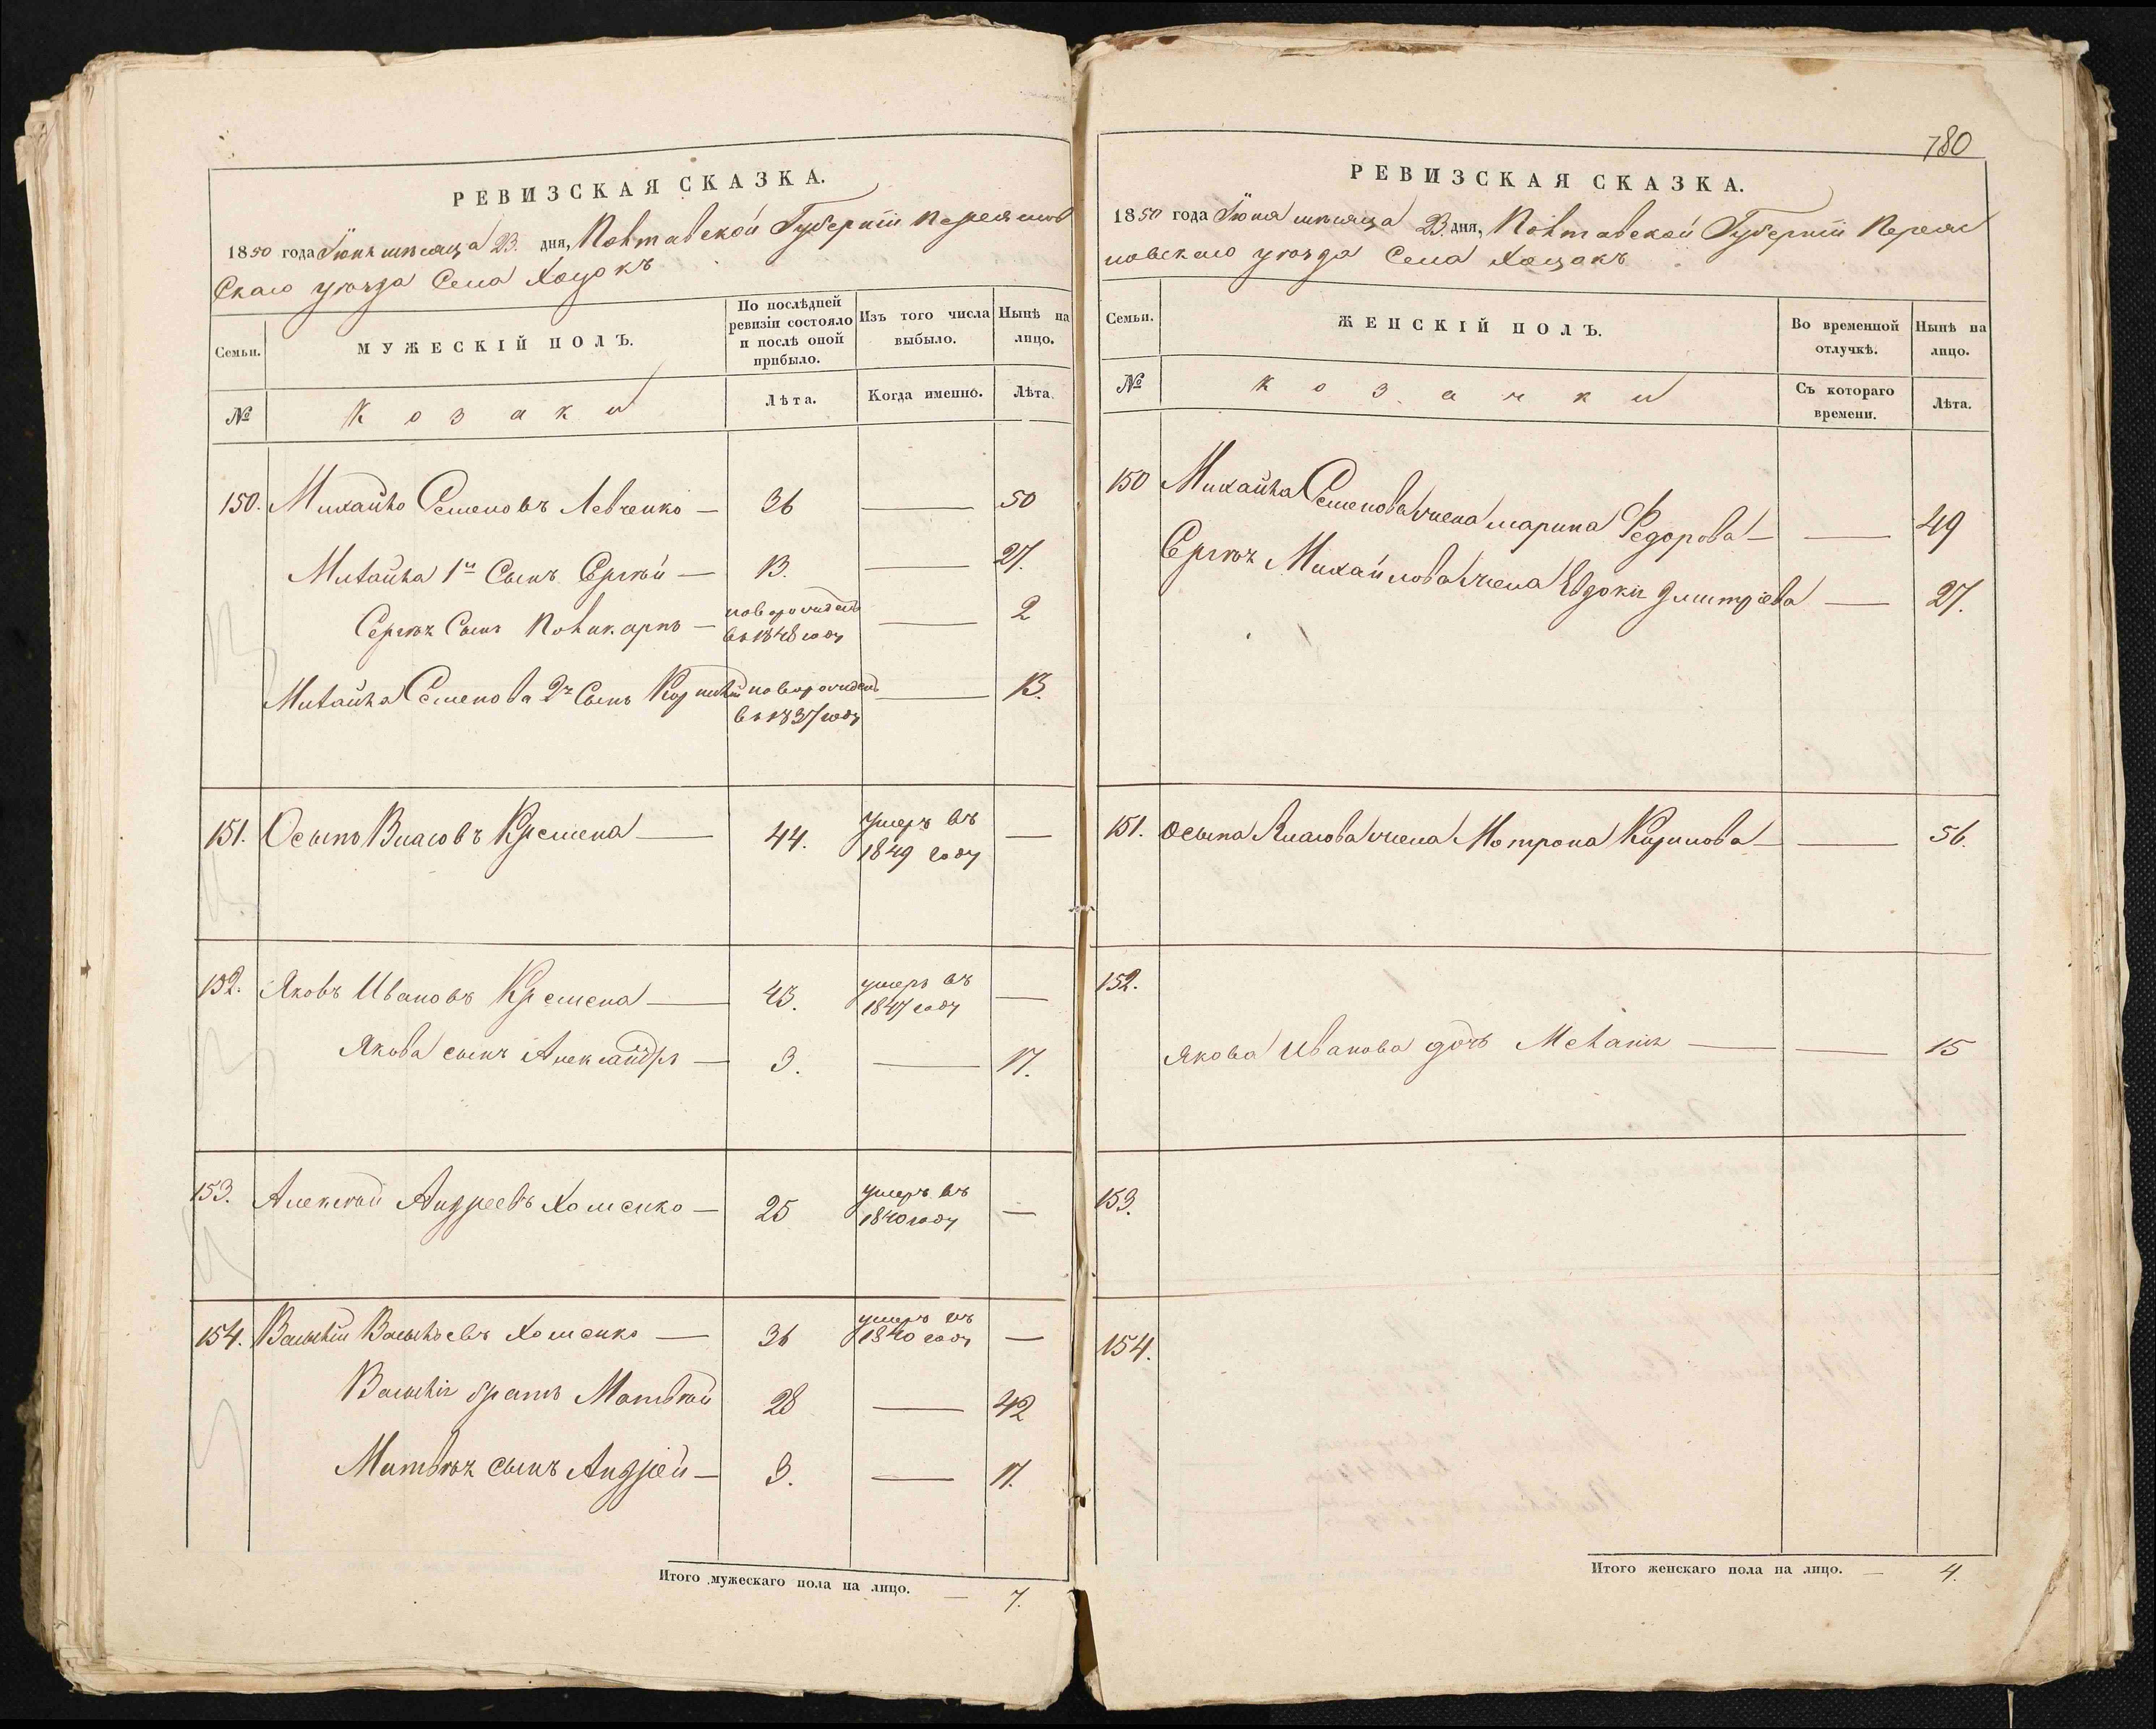 РЕВИЗСКАЯ СКАЗКА.
1850 года Іюня мѣсяца 23. дня, Полтавской Губерніи Переяслов
Скаго уѣзда Села Хоцокъ
Семьи.
МУЖЕСКІЙ ПОЛЪ.
По послѣдней ревизіи состояло и послѣ оной прибыло.
Изъ того числа выбыло.
Нынѣ на лицо.
№
Козаки
Лѣта.
Когда именно.
Лѣта.
150. Михайло Семеновъ Левченко — 36 — 50
Михайла 1й Сынъ Сергѣй — 13. — 27.
Сергѣя Сынъ Поликарпъ — новорожденъ въ 1848 году — 2
Михайла Семенова 2й Сынъ Корнилій новорожденъ въ 1837 году — 13.
151. Осыпъ Власовъ Кремена — 44. умеръ въ 1849 году —
152. Яковъ Ивановъ Кремена — 43. умеръ въ 1847 году —
Якова сынъ Александръ — 3. — 17.
153. Алексѣй Андреевъ Хоменко — 25 умеръ въ 1840 году —
154. Василій Васильевъ Хоменко — 36 умеръ въ 1840 году —
Василія братъ Матвѣй 28 — 42
Матвѣя сынъ Андрей — 3. — 17.
Итого мужескаго пола на лицо. — 7.
780
РЕВИЗСКАЯ СКАЗКА.
1850 года Іюня мѣсяца 23. дня, Полтавской Губерніи Переяс
ловскаго уѣзда Села Хоцокъ
Семьи.
ЖЕНСКІЙ ПОЛЪ.
Во временной отлучкѣ.
Нынѣ на лицо.
№
Козачки
Съ котораго времени.
Лѣта.
150 Михайла Семенова жена Марина Федорова — — 49
Сергѣя Михайлова жена Евдокія Дмитріева — 27.
151. Осыпа Власова жена Мотрона Карпова — — 56.
152.
Якова Иванова дочь Меланія — — 15
153.
154.
Итого женскаго пола на лицо. — 4.